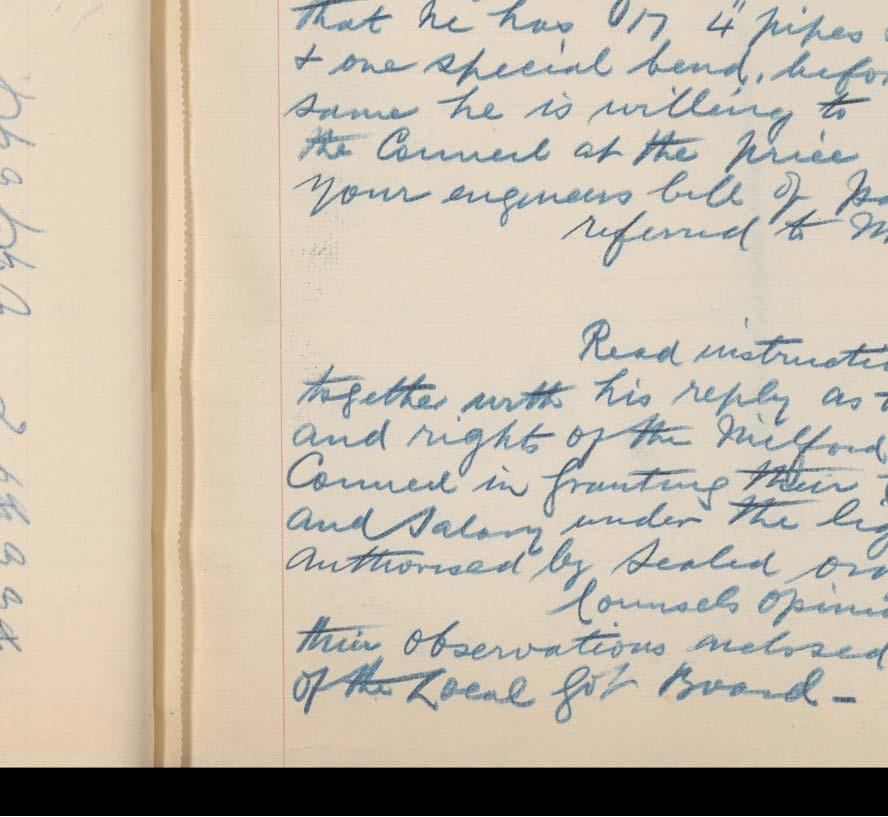 that he has 17 4" pipes
& one special bend, befor
same he is willing to
the Council at the price
your engineers bill of
referred to M
Read instructi
together with his reply as t
and rights of the Milford
Council in granting their
and Salary under the leg
authorised by Sealed ord
Counsels opini
their observations enclosed
of the Local Gov Board -